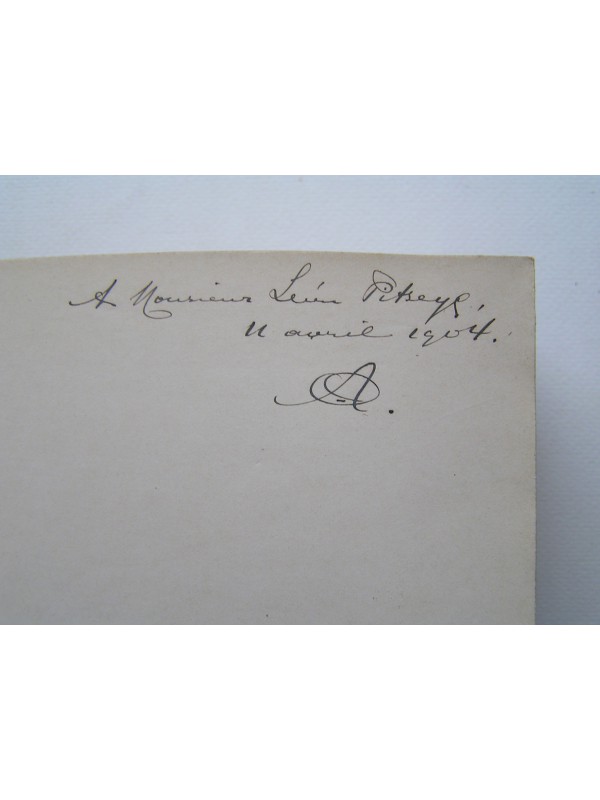 A Monsieur Léon Pitseys,
11 avril 1904.
A.